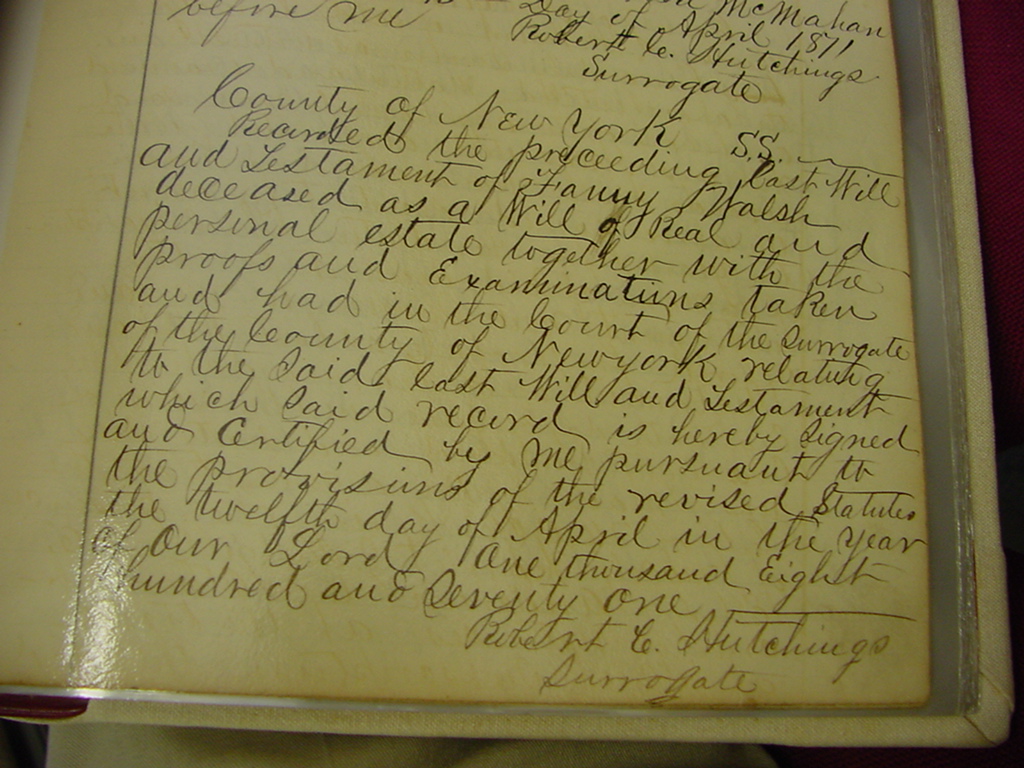 before me
Day of April 1871
McMahan
Robert C. Hutchings.
Surrogate
County of New York SS:
Recorded the preceding Last Will
and Testament of Fanny Walsh
deceased as a Will of Real and
personal estate together with the
proofs and Examinations taken
and had in the Court of the Surrogate
of the County of New York relating
to the said Last Will and Testament
which said record is hereby signed
and Certified by me pursuant to
the Provisions of the revised Statutes
the twelfth day of April in the year
of our Lord One thousand Eight
hundred and Seventy one
Robert C. Hutchings
Surrogate